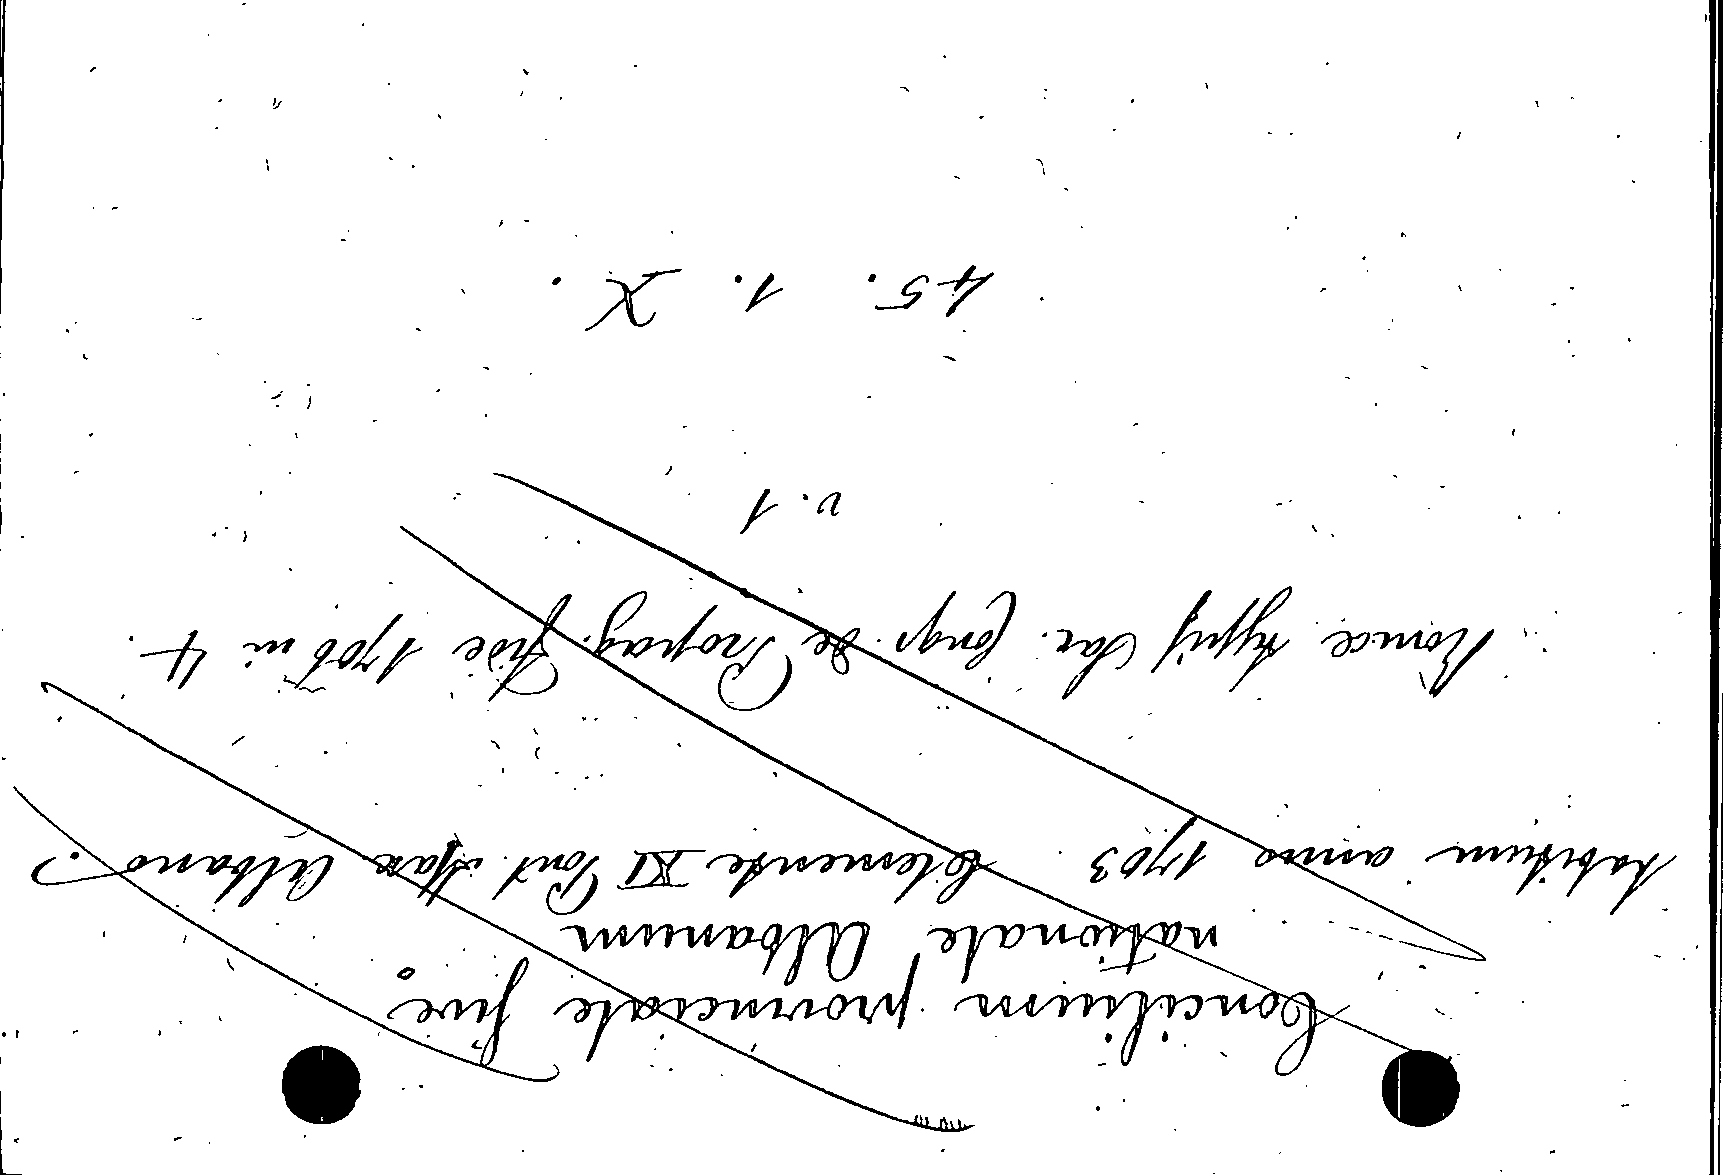 Concilium provinciale sive
nationale Albanum
habitum anno 1703. Clemente XI Pont. Max Albano.
Romae typis Sac. Congr. de Propag. Fide 1706 in 4
v. 1
45. 1. X.